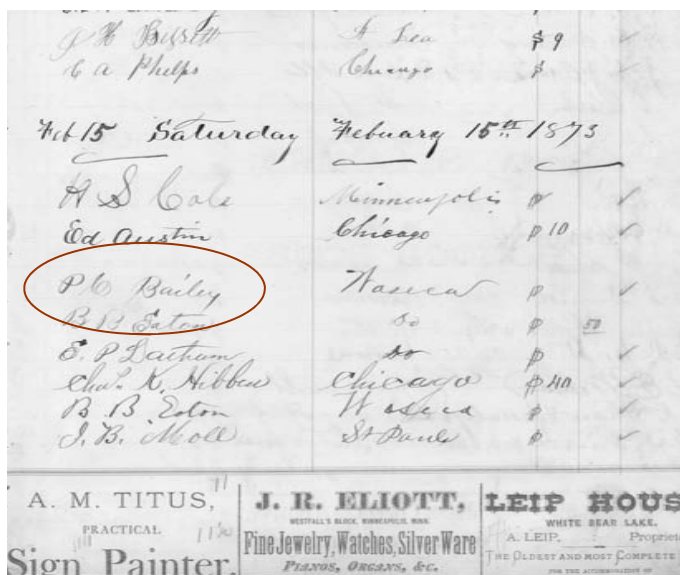 C A Phelps Chicago $ ✓
Feb 15 Saturday Febuary 15th 1873
H S Cole Minneapolis $ ✓
Ed Austin Chicago $ 10 ✓
P C Bailey Waseca $ ✓
B B Eaton do $ 50
E. P. Latham do $ ✓
Chas. K. Hibben Chicago $ 40 ✓
B. B. Eaton Waseca $ ✓
J. B. St Paul $ ✓
A. M. TITUS,
PRACTICAL
Sign Painter.
J. R. ELIOTT,
WESTFALL'S BLOCK, MINNEAPOLIS, MINN.
Fine Jewelry, Watches, Silver Ware
PIANOS, ORGANS, &C.
LEIP HOUS
WHITE BEAR LAKE.
A. LEIP, Propriet
THE OLDEST AND MOST COMPLETE
FOR THE ACCOMMODATION OF